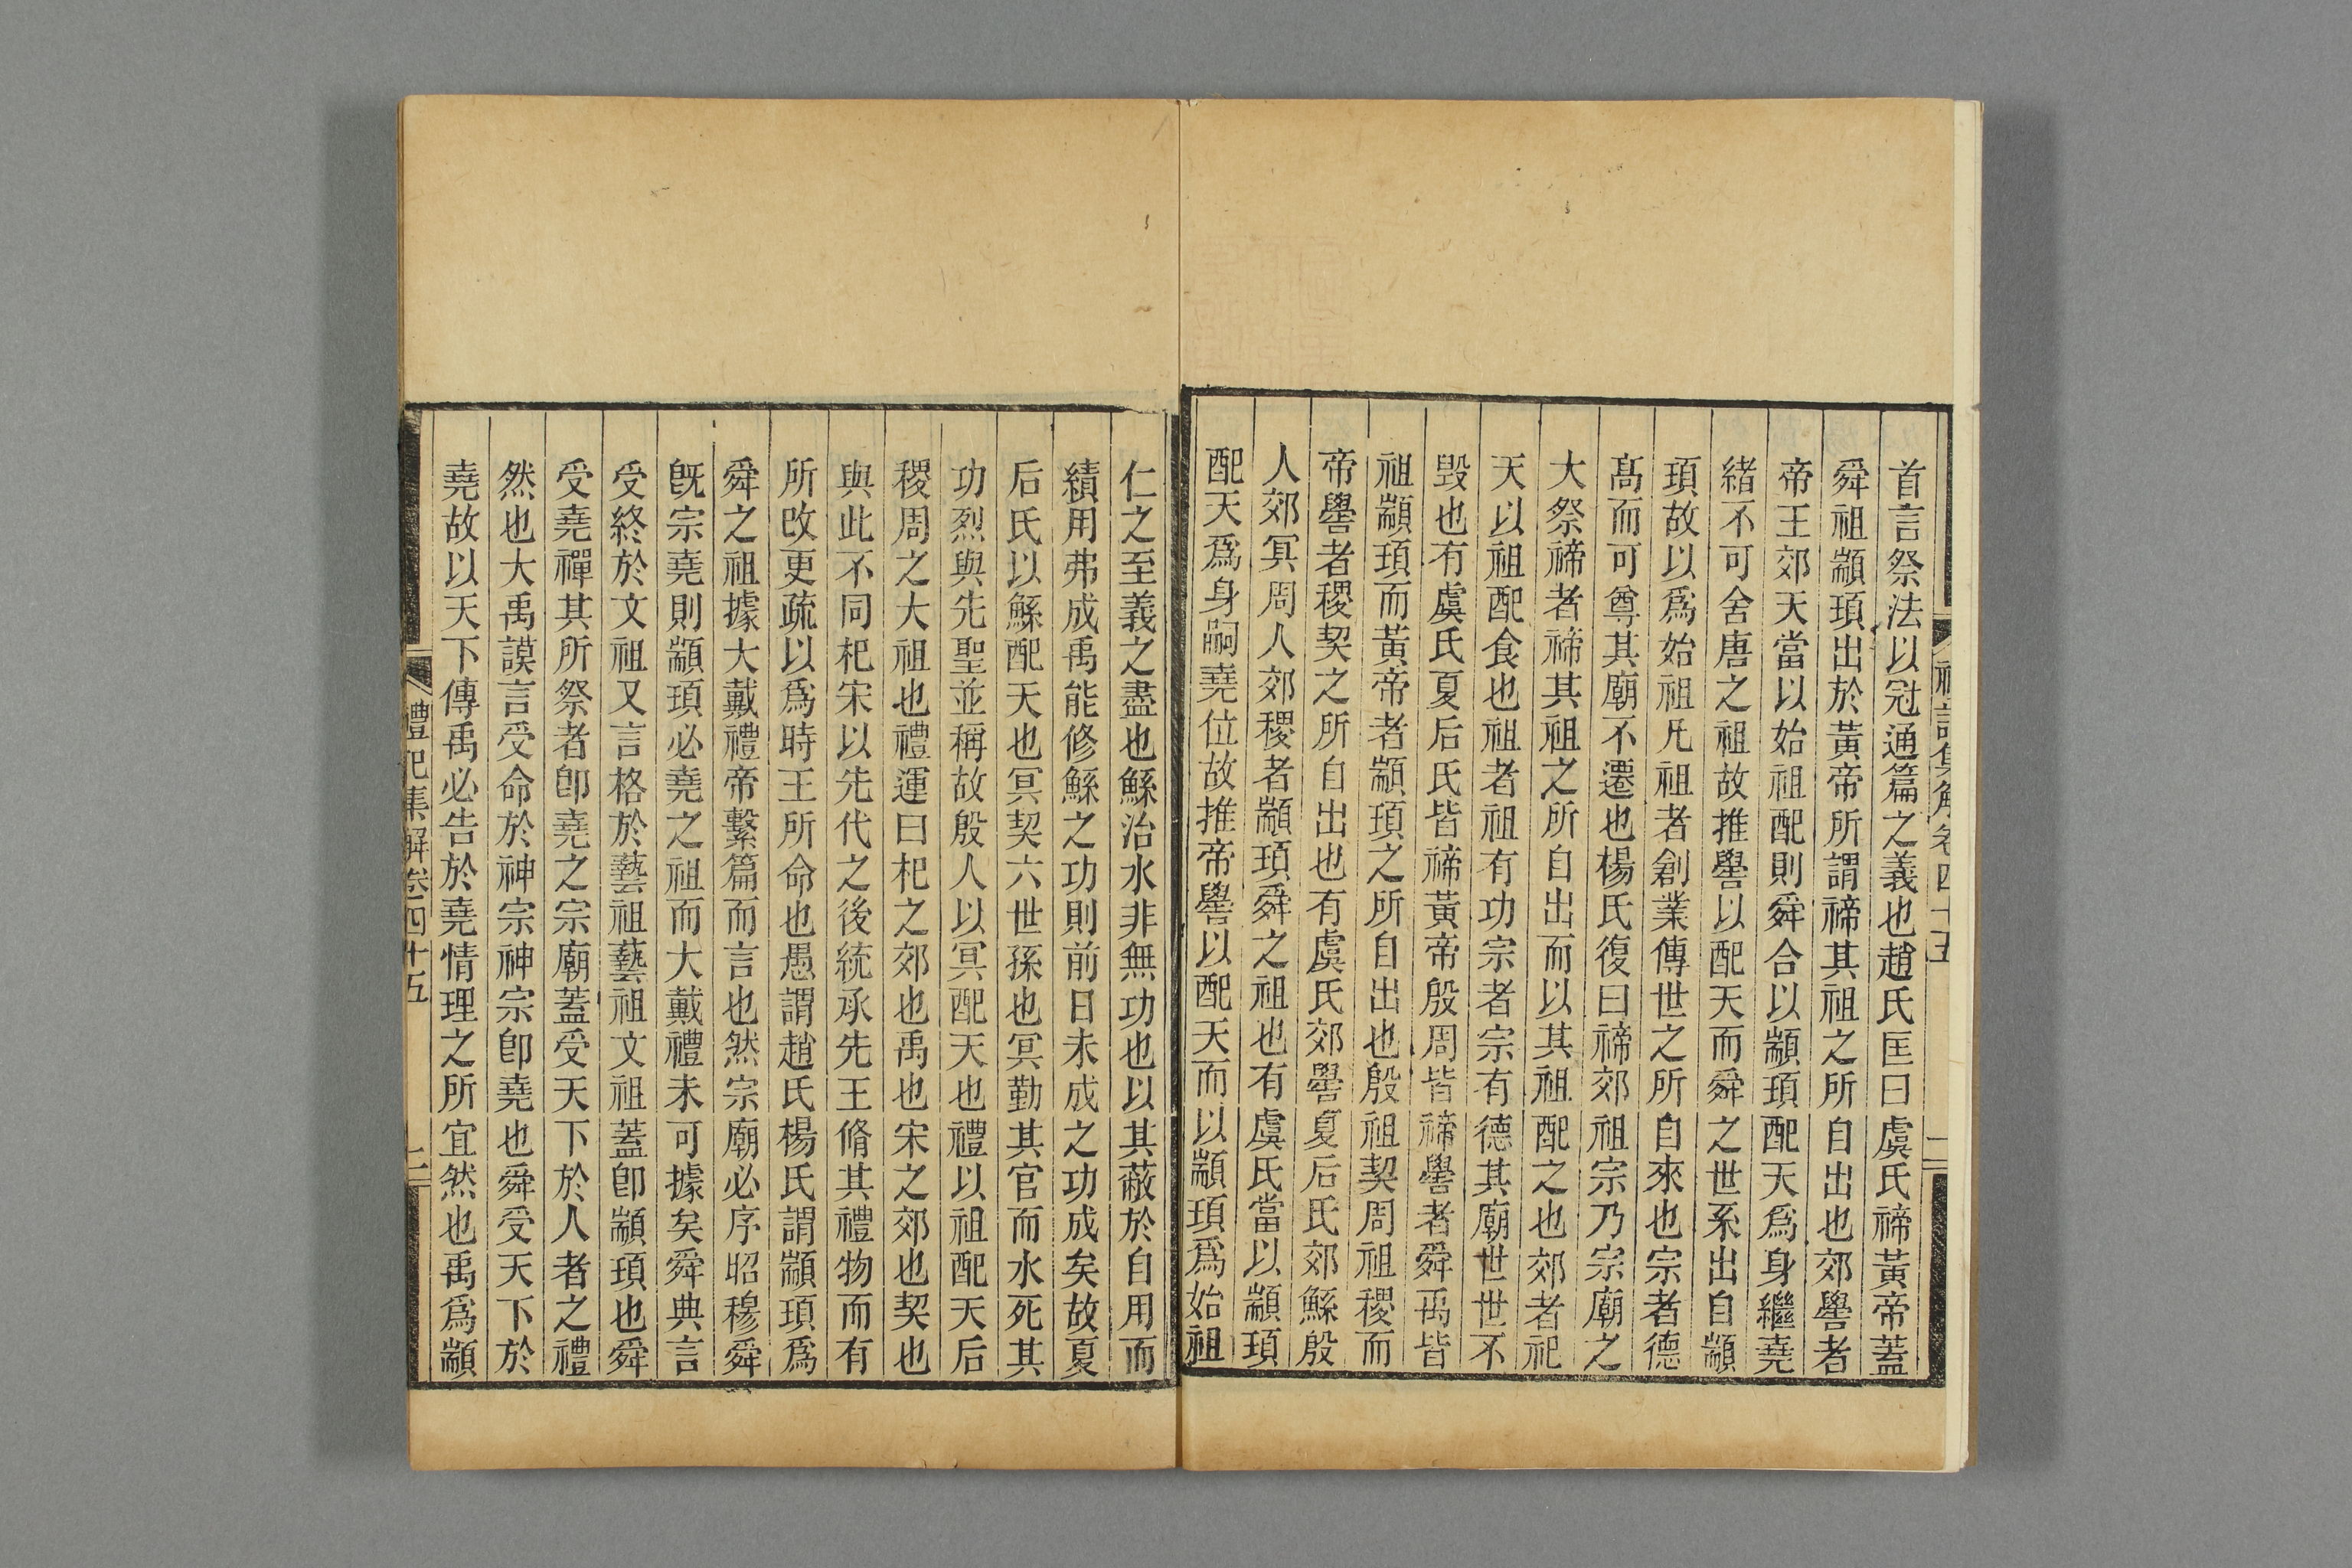 禮記集解卷四十五
二
首言祭法以冠通篇之義也趙氏匡曰虞氏禘黃帝蓋
舜祖顓頊出於黃帝所謂禘其祖之所自出也郊嚳者
帝王郊天當以始祖配則舜合以顓頊配天爲身繼堯
緒不可舍唐之祖故推嚳以配天而舜之世系出自顓
頊故以爲始祖凡祖者創業傳世之所自來也宗者德
髙而可尊其廟不遷也楊氏復曰禘郊祖宗乃宗廟之
大祭禘者禘其祖之所自出而以其祖配之也郊者祀
天以祖配食也祖者祖有功宗者宗有德其廟世世不
毁也有虞氏夏后氏皆禘黃帝殷周皆禘嚳者舜禹皆
祖顓頊而黃帝者顓頊之所自出也殷祖契周祖稷而
帝嚳者稷契之所自出也有虞氏郊嚳夏后氏郊鯀殷
人郊冥周人郊稷者顓頊舜之祖也有虞氏當以顓頊
配天爲身嗣堯位故推帝嚳以配天而以顓頊爲始祖
仁之至義之盡也鯀治水非無功也以其蔽於自用而
績用弗成禹能修鯀之功則前日未成之功成矣故夏
后氏以鯀配天也冥契六世孫也冥勤其官而水死其
功烈與先聖並稱故殷人以冥配天也禮以祖配天后
稷周之大祖也禮運曰杞之郊也禹也宋之郊也契也
與此不同杞宋以先代之後統承先王脩其禮物而有
所改更疏以爲時王所命也愚謂趙氏楊氏謂顓頊爲
舜之祖據大戴禮帝繫篇而言也然宗廟必序昭穆舜
旣宗堯則顓頊必堯之祖而大戴禮未可據矣舜典言
受終於文祖又言格於藝祖藝祖文祖蓋卽顓頊也舜
受堯禪其所祭者卽堯之宗廟蓋受天下於人者之禮
然也大禹謨言受命於神宗神宗卽堯也舜受天下於
堯故以天下傳禹必告於堯情理之所宜然也禹爲顓
禮記集解卷四十五
二